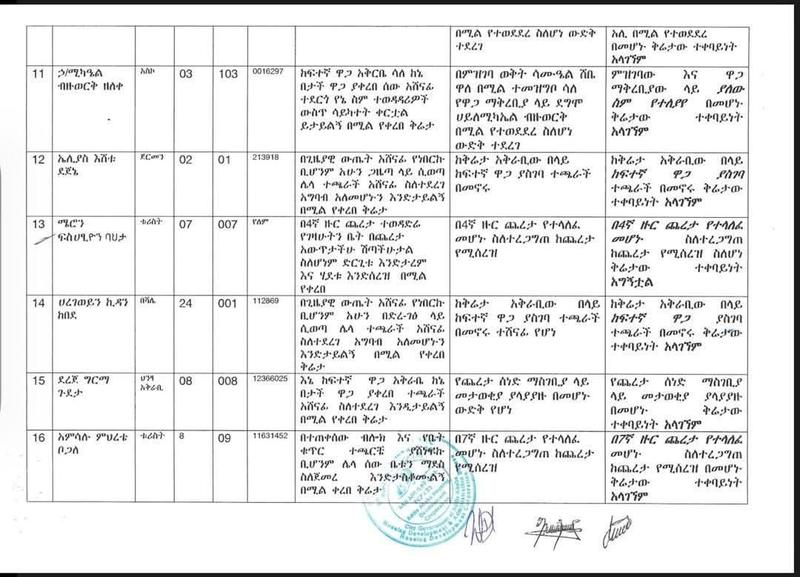 በሚል የተወደደረ ስለሆነ ውድቅ
ተደረገ
አሊ በሚል የተወደደረ
በመሆኑ ቅሬታው ተቀባይነት
አላገኘም
11
ኃ/ሚካኤል
ብዙወርቅ ዘለቀ
አስኮ
03
103
0016297
ከፍተኛ ዋጋ አቅርቤ ሳለ ከኔ
በታች ዋጋ ያቀረበ ሰው አሸናፊ
ተደርጎ የኔ ስም ተወዳዳሪዎች
ውስጥ ሳይካተት ቀርቷል
ይታይልኝ በሚል የቀረበ ቅሬታ
በምዝገባ ወቅት ሳሙኤል ሽቤ
ዋለ በሚል ተመዝግቦ ሳለ
የዋጋ ማቅረቢያ ላይ ደግሞ
ሀይለሚካኤል ብዙወርቅ
በሚል የተወደደረ ስለሆነ
ውድቅ ተደረገ
ምዝገባው እና ዋጋ
ማቅረቢያው ላይ ያለው
ስም የተለያየ በመሆኑ
ቅሬታው ተቀባይነት
አላገኘም
12
ኤሊያስ እሸቱ
ደጀኔ
ጀርመን
02
01
213918
በጊዜያዊ ውጤት አሸናፊ የነበርኩ
ቢሆንም አሁን ጋዜጣ ላይ ሲወጣ
ሌላ ተጫራች አሸናፊ ስለተደረገ
አግባብ አለመሆኑን እንድታይልኝ
በሚል የቀረበ ቅሬታ
ከቅሬታ አቅራቢው በላይ
ከፍተኛ ዋጋ ያስገባ ተጫራች
በመኖሩ
ከቅሬታ አቅራቢው በላይ
ከፍተኛ ዋጋ ያስገባ
ተጫራች በመኖሩ ቅሬታው
ተቀባይነት አላገኘም
13
ሜሮን
ፍስሀፂዮን ባህታ
ቱሪስት
07
007
የለም
በ4ኛ ዙር ጨረታ ተወዳድሬ
የገዛሁትን ቤት በጨረታ
አውጥታችሁ ሽጣችሁታል
ስለሆነም ድርጊቱ እንድታረም
እና ሂደቱ እንድሰረዝ በሚል
የቀረበ
በ4ኛ ዙር ጨረታ የተላለፈ
መሆኑ ስለተረጋገጠ ከጨረታ
የሚሰረዝ
በ4ኛ ዙር ጨረታ የተላለፈ
መሆኑ ስለተረጋገጠ
ከጨረታ የሚሰረዝ ስለሆነ
ቅሬታው ተቀባይነት
አግኝቷል
14
ሀረገወይን ኪዳን
ከበደ
በሻሌ
24
001
112869
በጊዜያዊ ውጤት አሸናፊ የነበርኩ
ቢሆንም አሁን በድረ-ገፅ ላይ
ሲወጣ ሌላ ተጫራች አሸናፊ
ስለተደረገ አግባብ አለመሆኑን
እንድታይልኝ በሚል የቀረበ
ቅሬታ
ከቅሬታ አቅራቢው በላይ
ከፍተኛ ዋጋ ያስገባ ተጫራች
በመኖሩ ተሸናፊ የሆነ
ከቅሬታ አቅራቢው በላይ
ከፍተኛ ዋጋ ያስገባ
ተጫራች በመኖሩ ቅሬታው
ተቀባይነት አላገኘም
15
ደረጀ ግርማ
ጉደታ
ሀንፃ
አቅራቢ
08
008
12366025
እኔ ከፍተኛ ዋጋ አቅራቤ ከኔ
በታች ዋጋ ያቀረበ ተጫራች
አሸናፊ ስለተደረገ እንዲታይልኝ
በሚል የቀረበ ቅሬታ
የጨረታ ሰነድ ማስገቢያ ላይ
መታወቂያ ያላያያዙ በመሆኑ
ውድቅ የሆነ
የጨረታ ሰነድ ማስገቢያ
ላይ መታወቂያ ያላያያዙ
በመሆኑ ቅሬታው
ተቀባይነት አላገኘም
16
አምሳሉ ምህረቴ
ቦጋለ
ቱሪስት
8
09
11631452
በተጠቀሰው ብሎክ እና የቤት
ቁጥር ተጫርቼ ያሸነፍኩ
ቢሆንም ሌላ ሰው ቤቱን ማደስ
ስለጀመረ እንድታስቆሙልኝ
በሚል ቀረበ ቅሬታ
በ7ኛ ዙር ጨረታ የተላለፈ
መሆኑ ስለተረጋገጠ ከጨረታ
የሚሰረዝ
በ7ኛ ዙር ጨረታ የተላለፈ
መሆኑ ስለተረጋገጠ
ከጨረታ የሚሰረዝ በመሆኑ
ቅሬታው ተቀባይነት
አላገኘም